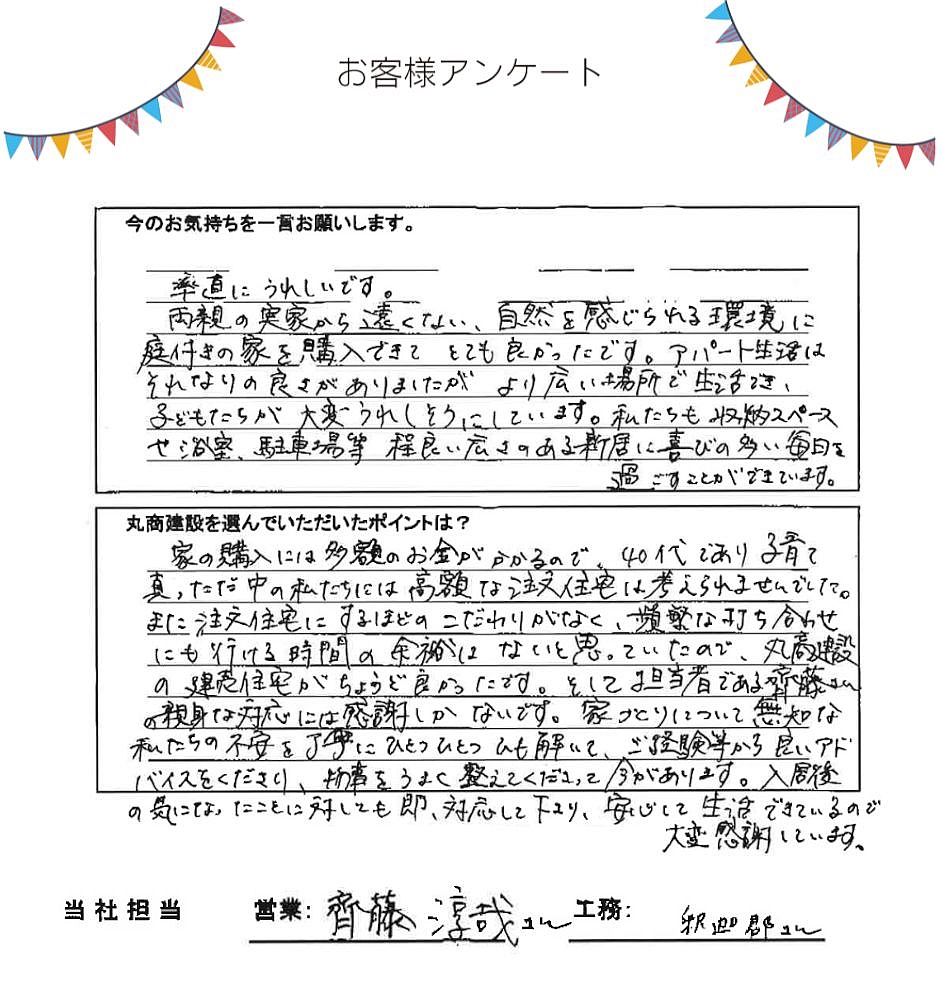 お客様アンケート
今のお気持ちを一言お願いします。
率直にうれしいです。
両親の実家から遠くない、自然を感じられる環境に
庭付きの家を購入できて とても良かったです。アパート生活は
それなりの良さがありましたが より広い場所で生活でき、
子どもたちが 大変うれしそうにしています。私たちも 収納スペース
や浴室、駐車場等 程良い広さのある新居に喜びの多い毎日を
過ごすことができています。
丸商建設を選んでいただいたポイントは？
家の購入には多額のお金がかかるので、40代であり子育て
真っただ中の私たちには高額な注文住宅は考えられませんでした。
また注文住宅にするほどのこだわりがなく、頻繁な打ち合わせ
にも行ける時間の余裕はないと思っていたので、丸商建設
の建売住宅がちょうど良かったです。そして担当者である齊藤さん
の親身な対応には感謝しかないです。家づくりについて無知な
私たちの不安を丁寧にひとつひとつひも解いて、ご経験等から良いアド
バイスをくださり、物事をうまく整えてくださって今があります。入居後
の気になったことに対しても即、対応して下さり、安心して生活できているので
大変感謝しています。
当社担当 営業：齊藤 淳哉さん 工務：釈迦郡さん